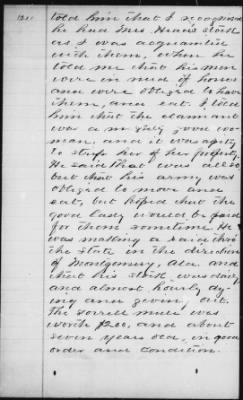 told him that I recognized
he had Mrs. Hearn's stock
as I was acquainted
with them, when he
told me that his men
were in need of horses
and were obliged to have
them, and eat. I told
him that the claimant
was a very good wo-
man, and it was a pity
to strip her of her property.
He said that was also
but that his army was
obliged to move and
eat, but hoped that the
good lady would be paid
for them sometime. He
was making a raid thro
the state in the direction
of Montgomery, Ala. and
that his stock was daily
and almost hourly dy-
ing and giving out.
The sorrell mule was
worth $200, and about
seven years old, in good
order and condition.